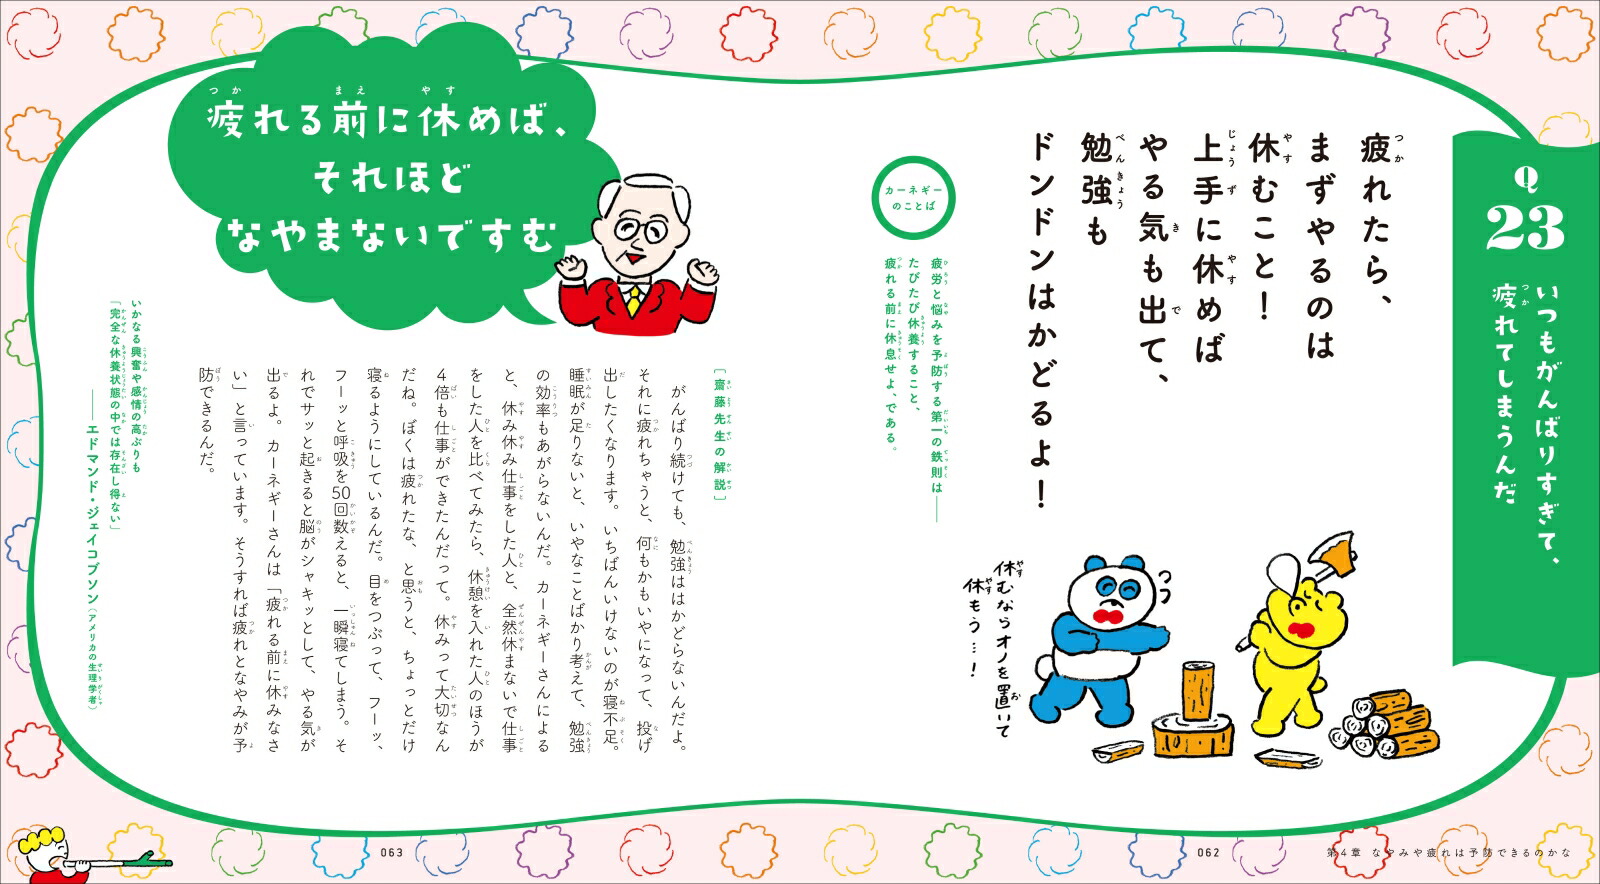 Q
23
いつもがんばりすぎて、
疲れてしまうんだ
疲れたら、
まずやるのは
休むこと！
上手に休めば
やる気も出て、
勉強も
ドンドンはかどるよ！
カーネギー
のことば
疲労と悩みを予防する第一の鉄則は――
たびたび休養すること、
疲れる前に休息せよ、である。
休むならオノを置いて
休もう…！
062
第4章 なやみや疲れは予防できるのかな
疲れる前に休めば、
それほど
なやまないですむ
［齋藤先生の解説］
がんばり続けても、勉強ははかどらないんだよ。
それに疲れちゃうと、何もかもいやになって、投げ
出したくなります。いちばんいけないのが寝不足。
睡眠が足りないと、いやなことばかり考えて、勉強
の効率もあがらないんだ。カーネギーさんによる
と、休み休み仕事をした人と、全然休まないで仕事
をした人を比べてみたら、休憩を入れた人のほうが
4倍も仕事ができたんだって。休みって大切なん
だね。ぼくは疲れたな、と思うと、ちょっとだけ
寝るようにしているんだ。目をつぶって、フーッ、
フーッと呼吸を50回数えると、一瞬寝てしまう。そ
れでサッと起きると脳がシャキッとして、やる気が
出るよ。カーネギーさんは「疲れる前に休みなさ
い」と言っています。そうすれば疲れとなやみが予
防できるんだ。
いかなる興奮や感情の高ぶりも
「完全な休養状態の中では存在し得ない」
――エドマンド・ジェイコブソン（アメリカの生理学者）
063